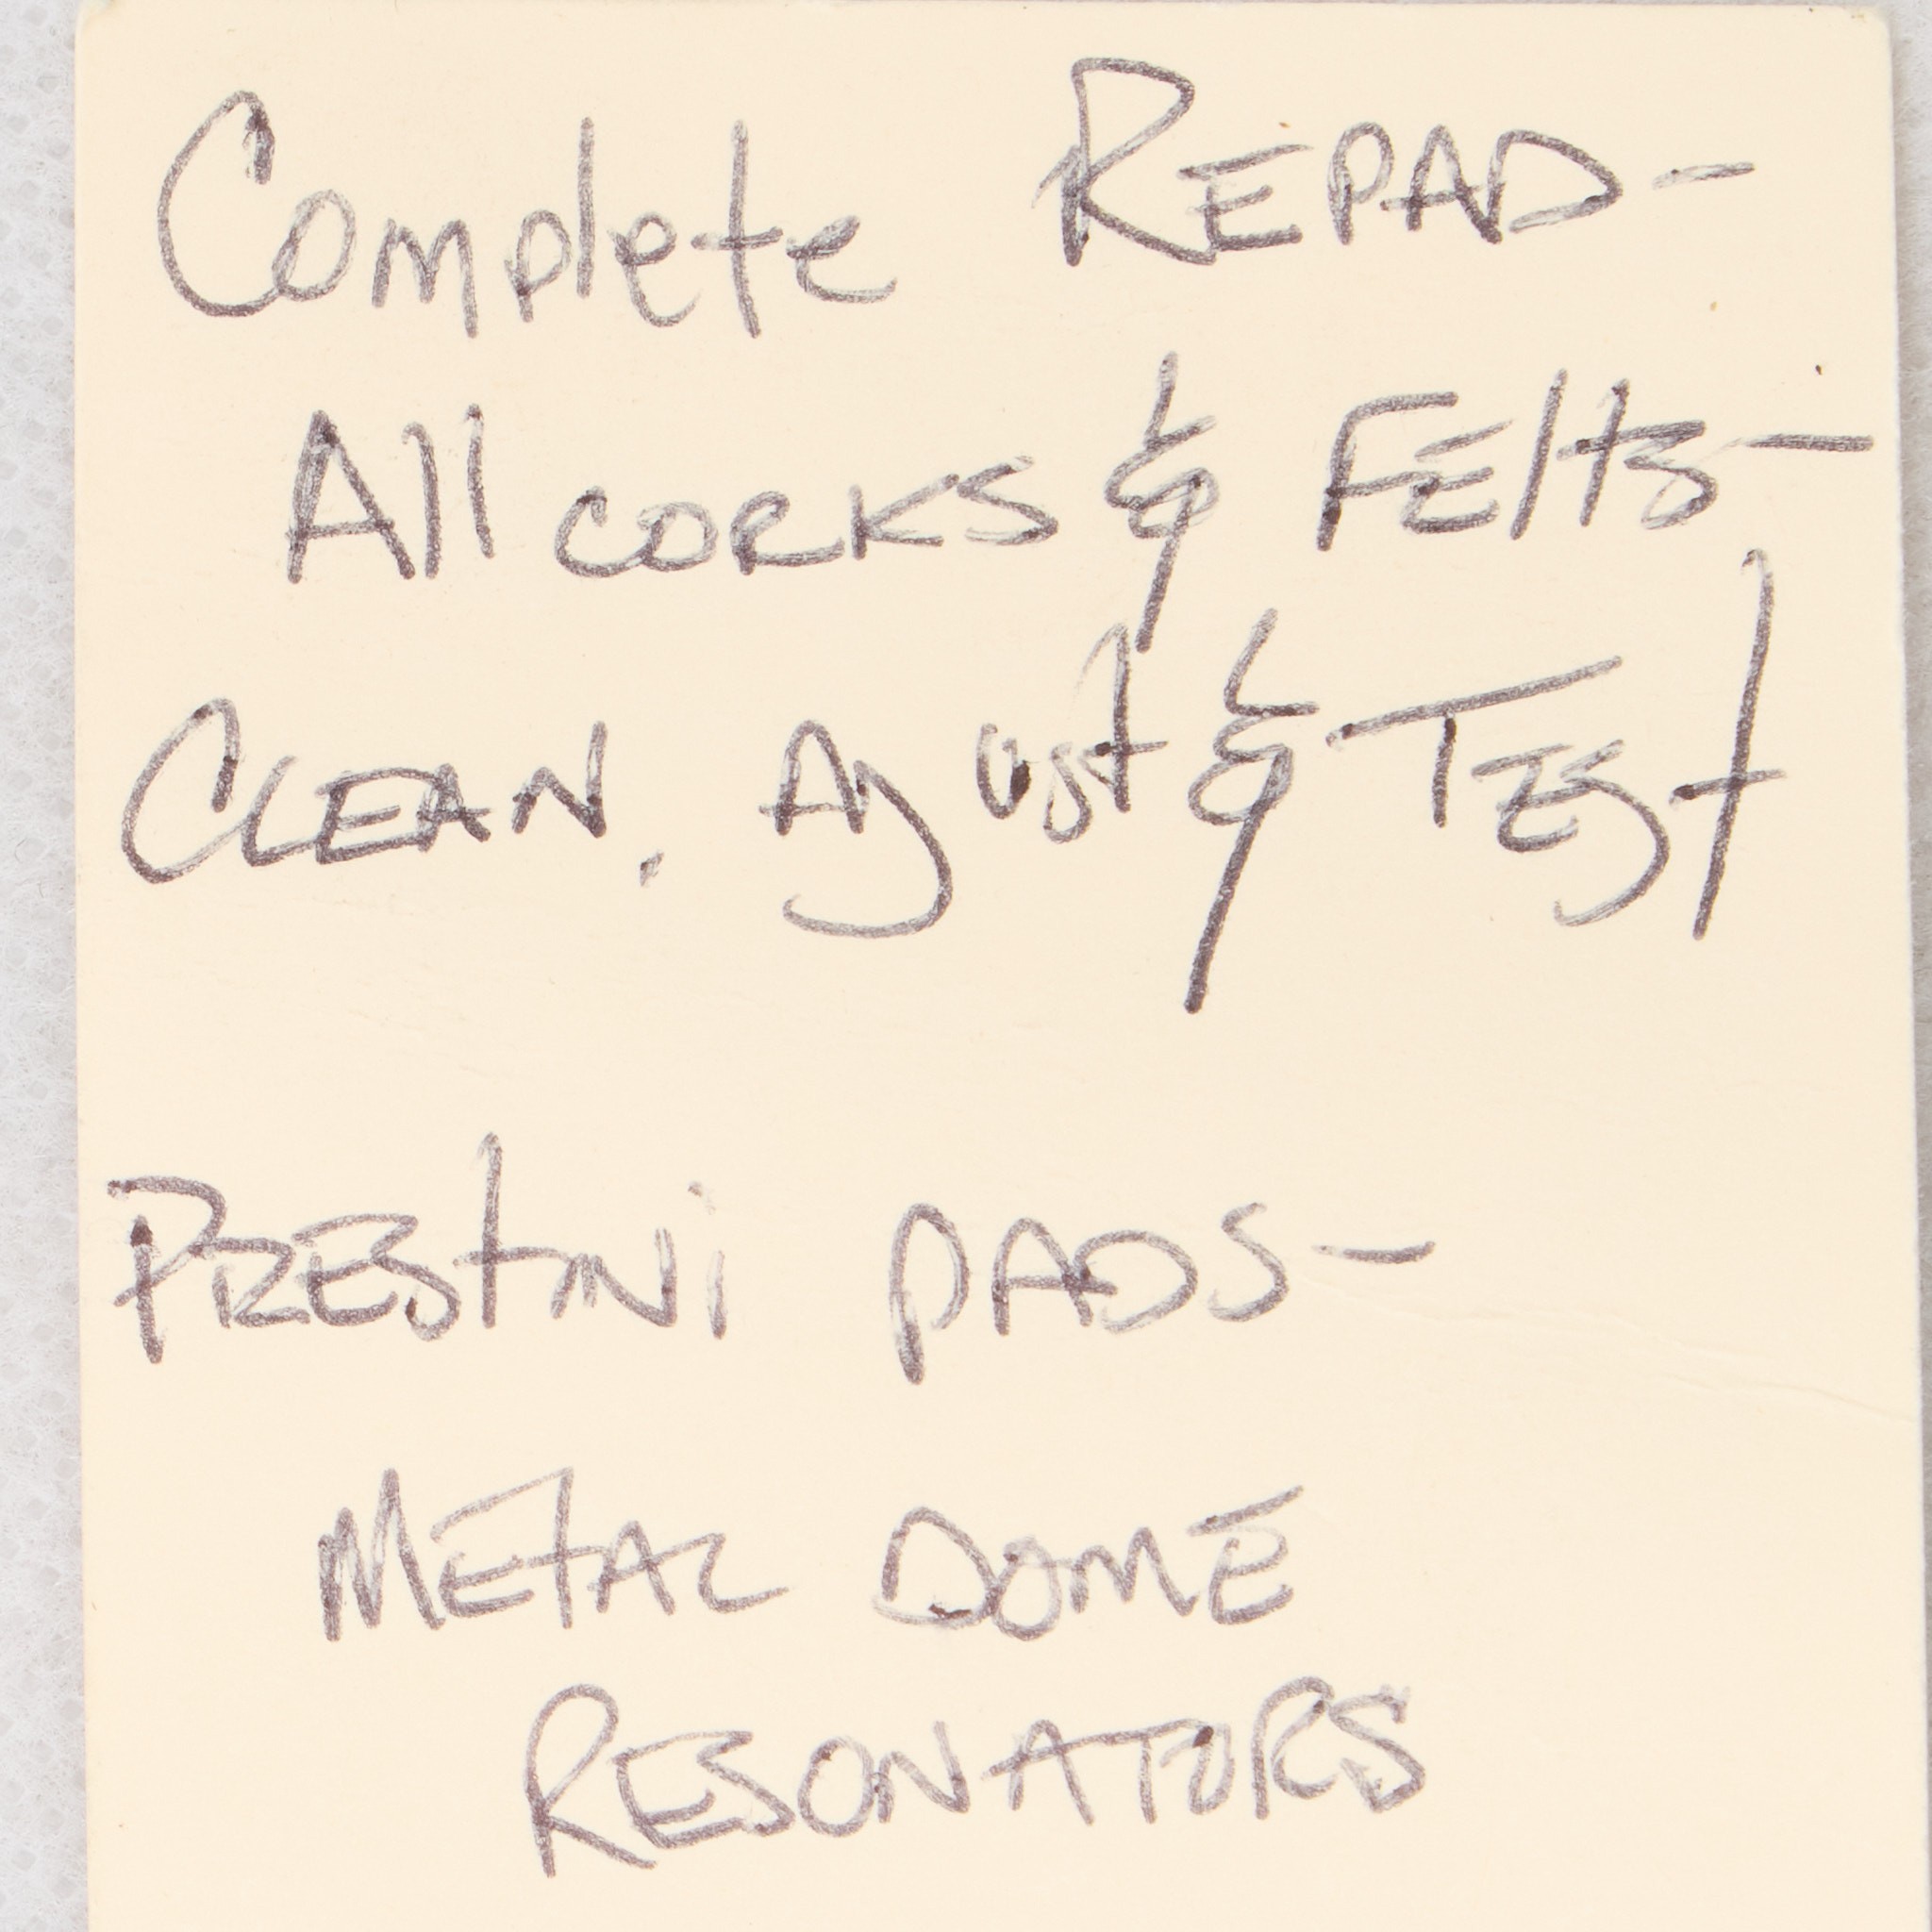 Complete REPAD-
All CORKS & FElts-
CLEAN, Ajust & TEST
PREStiNi PADS-
METAL DOME
RESONATORS